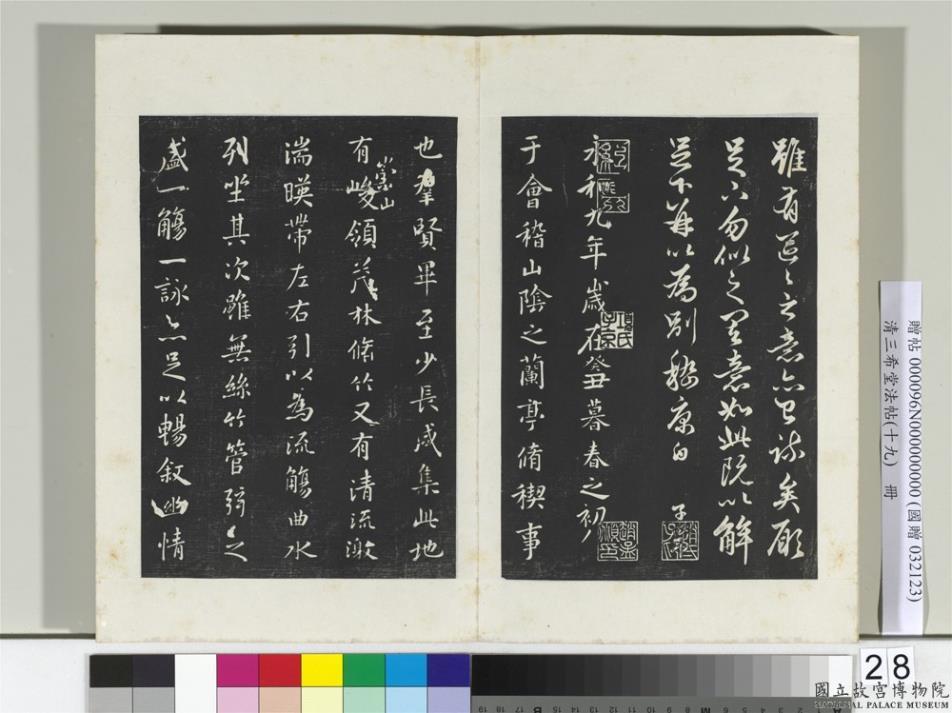 雖有區區之意亦已疏矣願
足下勿似之其意如此既以解
足下并以為別嵇康白
永和九年歲在癸丑暮春之初會
于會稽山陰之蘭亭脩稧事
也群賢畢至少長咸集此地
有崇山峻領茂林脩竹又有清流激
湍暎帶左右引以為流觴曲水
列坐其次雖無絲竹管弦之
盛一觴一詠亦足以暢敘幽情
贈帖 000096N000000000 (國贈 032123)
清三希堂法帖(十九) 冊
28
國立故宮博物院
NATIONAL PALACE MUSEUM